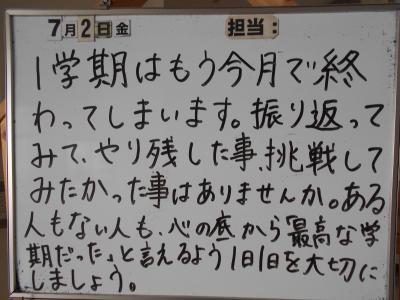 7月2日金 担当:
1学期はもう今月で終
わってしまいます。振り返って
みて、やり残した事、挑戦して
みたかった事はありませんか。ある
人もない人も、心の底から「最高な学
期だった」と言えるよう1日1日を大切に
しましょう。